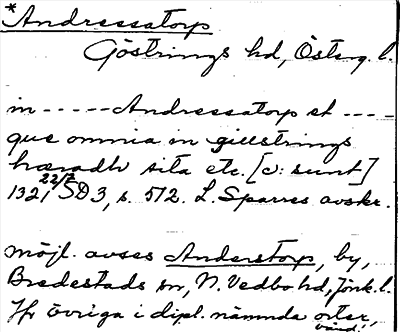 *Andressatorp
Göstrings hd, Österg. l.
in - - - - - Andressatorp et - - - -
que omnia in gillstrings
hæradh sita etc. [ɔ: sunt]
1321 22/7 SD 3, s. 512. L. Sparres avskr.
möjl. avses Anderstorp, by,
Bredestads sn, N. Vedbo hd, Jönk. l.
Jfr övriga i dipl. nämnda orter,